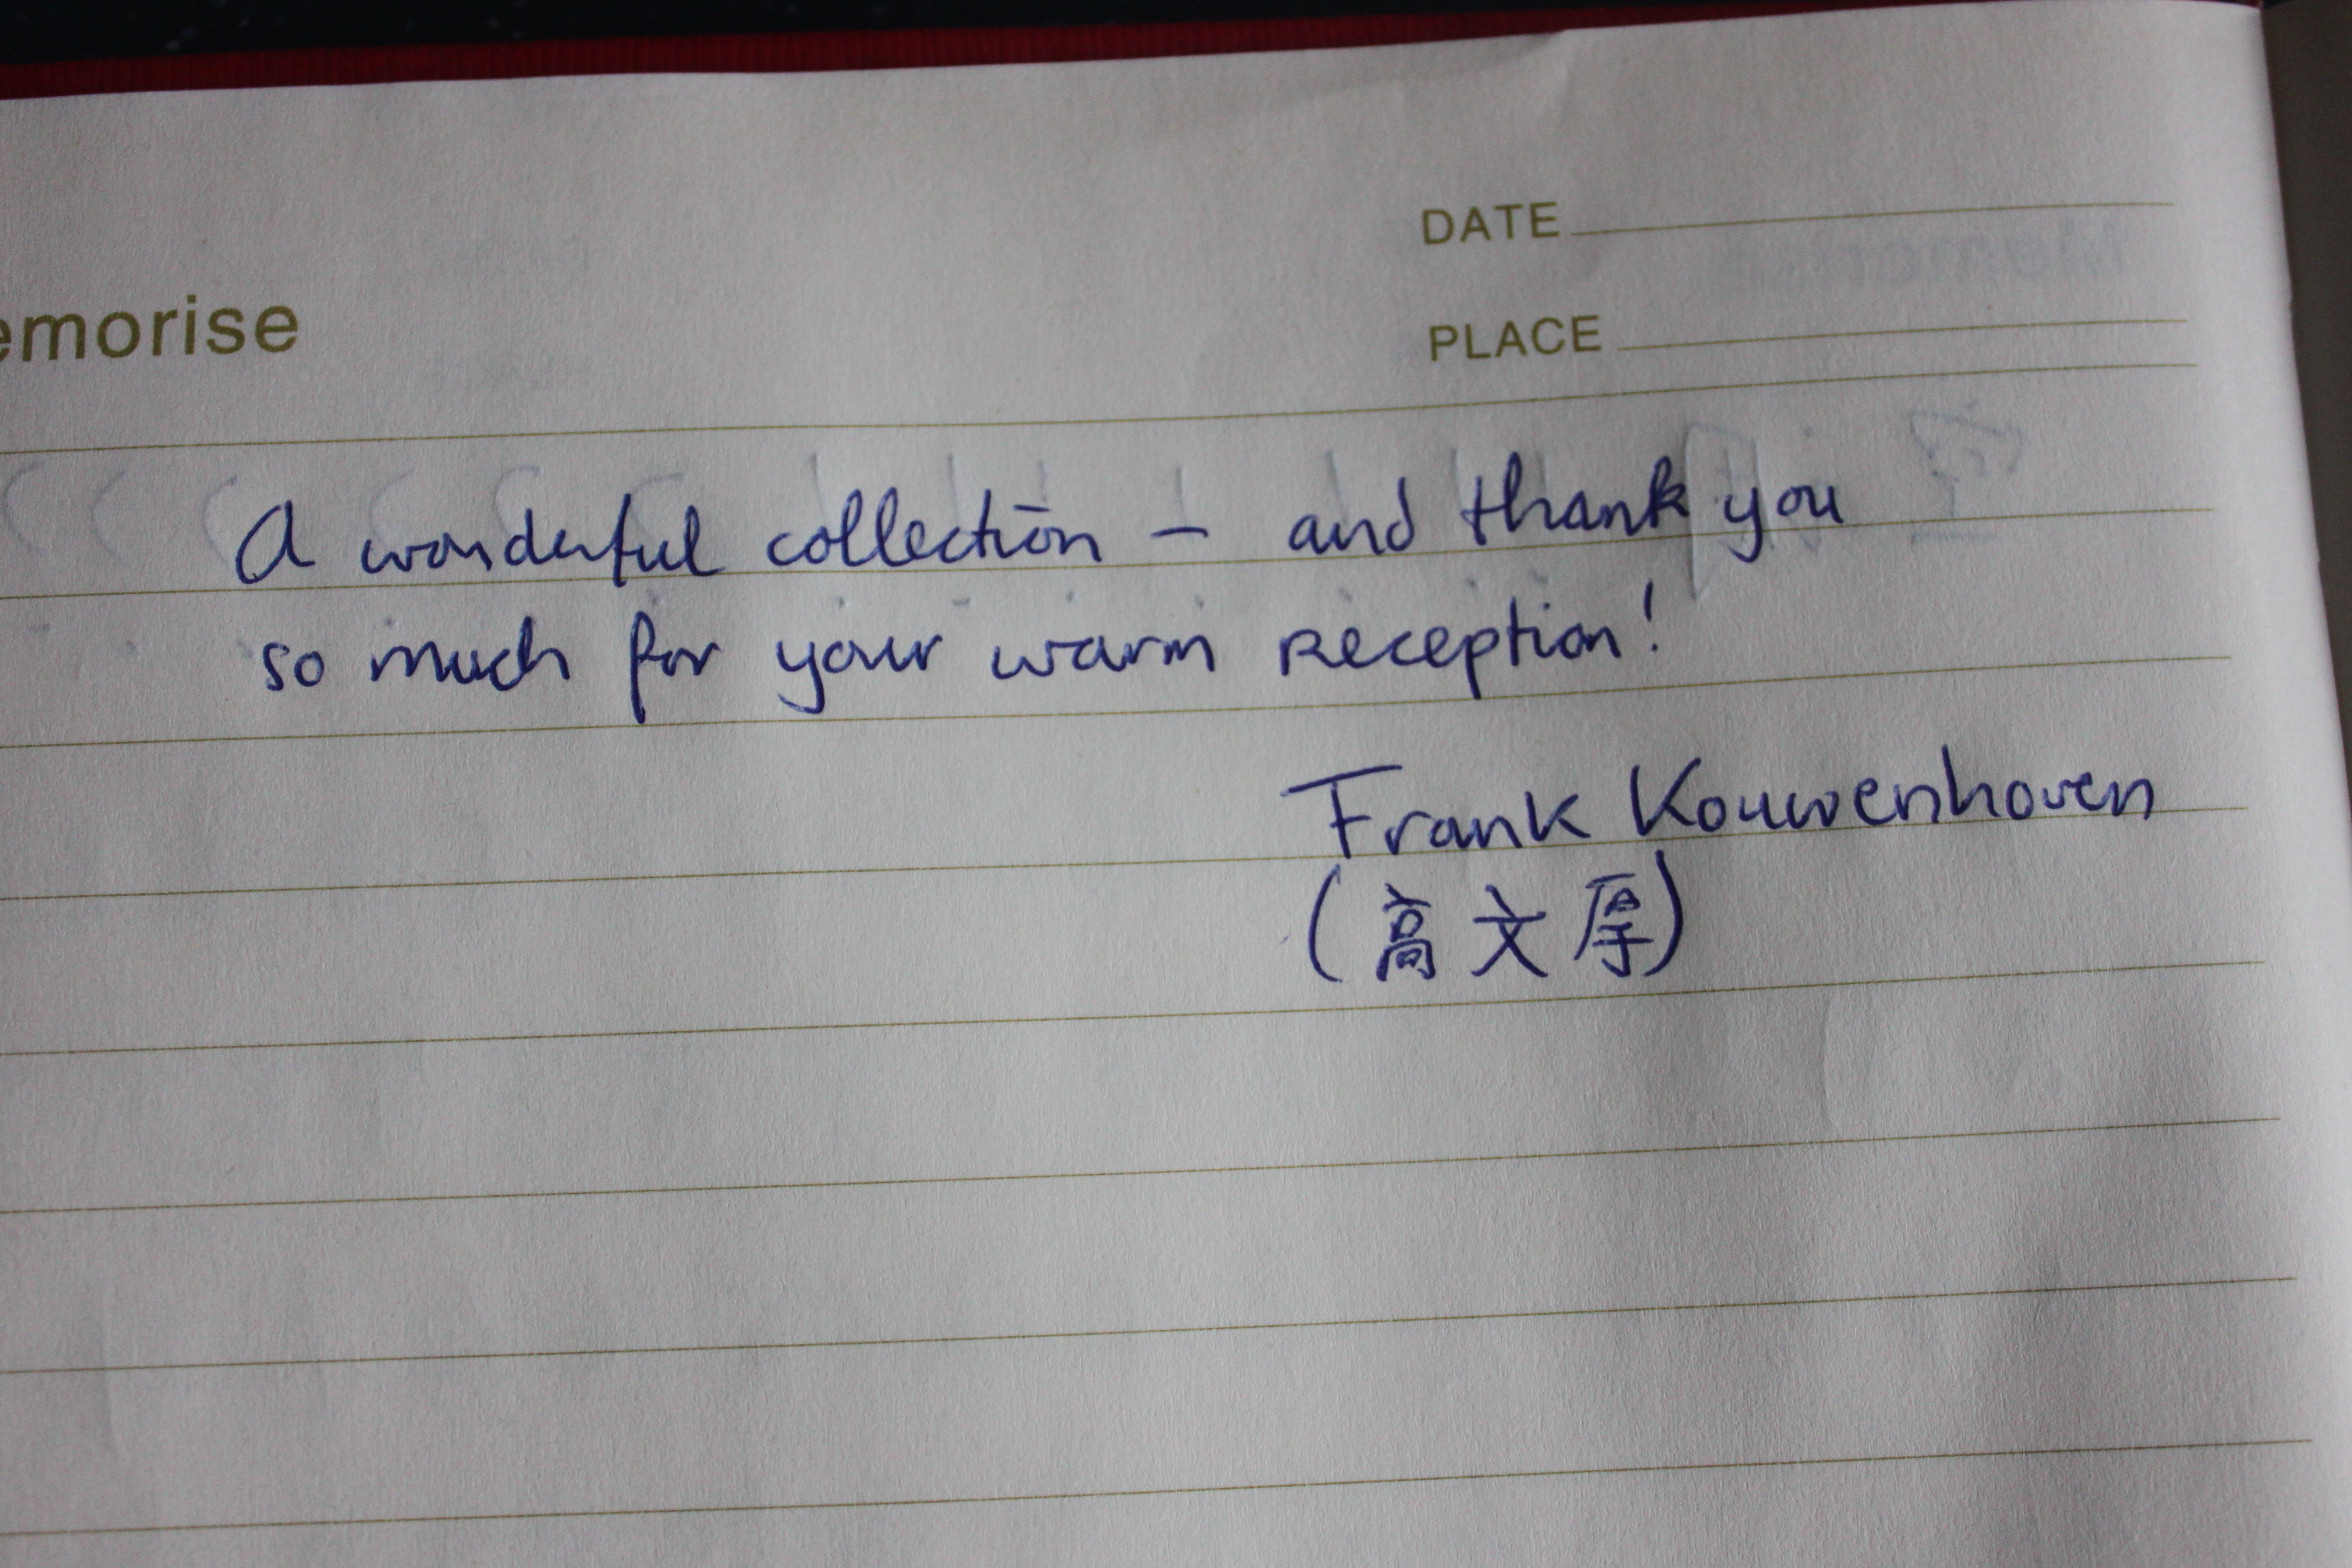 DATE
PLACE
emorise
A wonderful collection – and thank you
so much for your warm reception!
Frank Kouwenhoven
(高文厚)